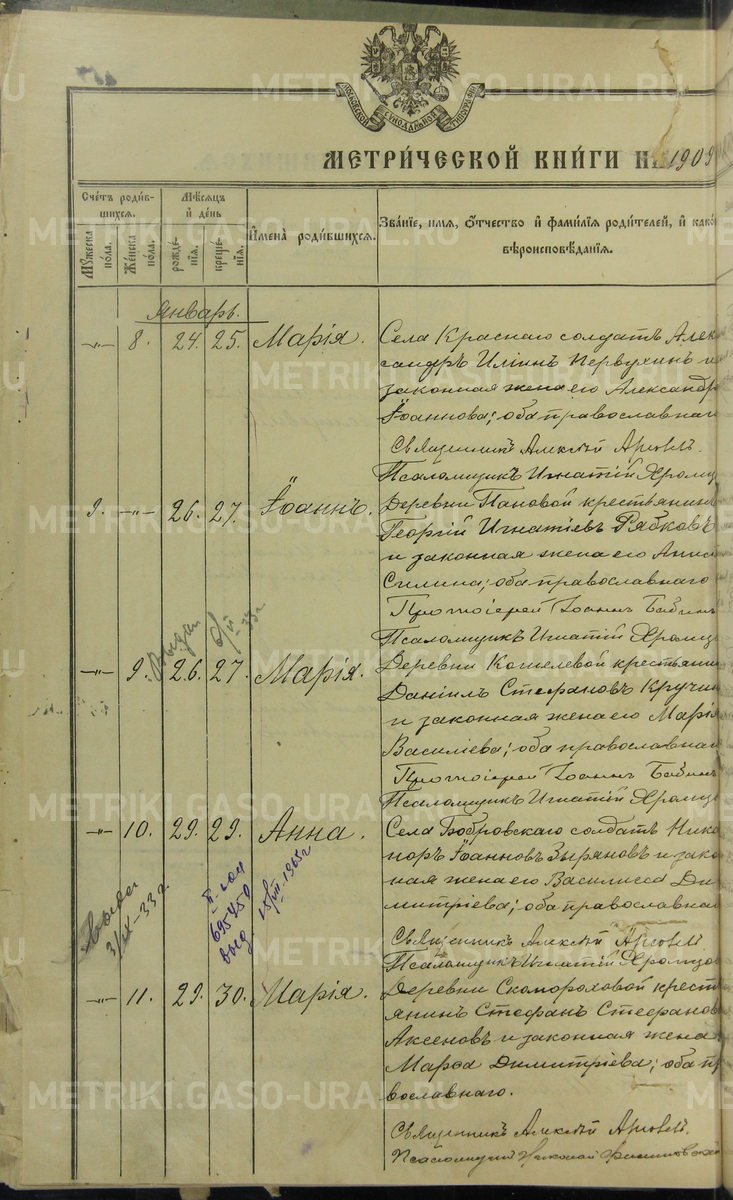 МЕТРИ́ЧЕСКОЙ КНИ́ГИ НА 1909
Сче́тъ роди́в-
шихся.
Му́жеска
по́ла.
Же́нска
по́ла.
Мѣ́сяцъ
и҆ де́нь
рожде́-
нїя.
креще́-
нїя.
И҆мена̀ роди́вшихся.
Зва́нїе, и҆мя, ѻ҆́тчество и҆ фами́лїя роди́телей, и҆ како́
вѣроисповѣ́данїя.
Январь.
-"- 8. 24. 25. Марія. Села Краснаго солдатъ Алек
сандръ Илiинъ Первухинъ и
законная жена его Александр
Іоаннова; оба православнаг
Священникъ Алексѣй
Псаломщикъ Игнатій
9. -"- 26. 27. Іоаннъ. Деревни Пановой крестьянин
Георгій Игнатіевъ Рябковъ
и законная жена его Анна
Силина; оба православнаго
Протоіерей Іоаннъ Бабинъ
Псаломщикъ Игнатій
Выдан 6/II 33 г
-"- 9. 26. 27. Марія. Деревни Кошелевой крестьянин
Даніилъ Стефановъ Кручин
и законная жена его Марія
Василіева; оба православнаг
Протоіерей Іоаннъ Бабинъ
Псаломщикъ Игнатій
-"- 10. 29. 29. Анна. Села Бобровскаго солдатъ Ника
норъ Іоанновъ Зыряновъ и зако
ная жена его Василисса Ди
митріева; оба православнаг
3/IX-33 г.
II-ЮЛ
695450
выд 15/VII-1965 г
Священникъ Алексѣй
Псаломщикъ Игнатій
-"- 11. 29. 30. Марія. Деревни Скомороховой крест
янинъ Стефанъ Стефанов
Аксеновъ и законная жена
Марѳа Димитріева; оба пр
вославнаго.
Священникъ Алексѣй
Псаломщикъ Николай
METRIKI.GASO-URAL.RU